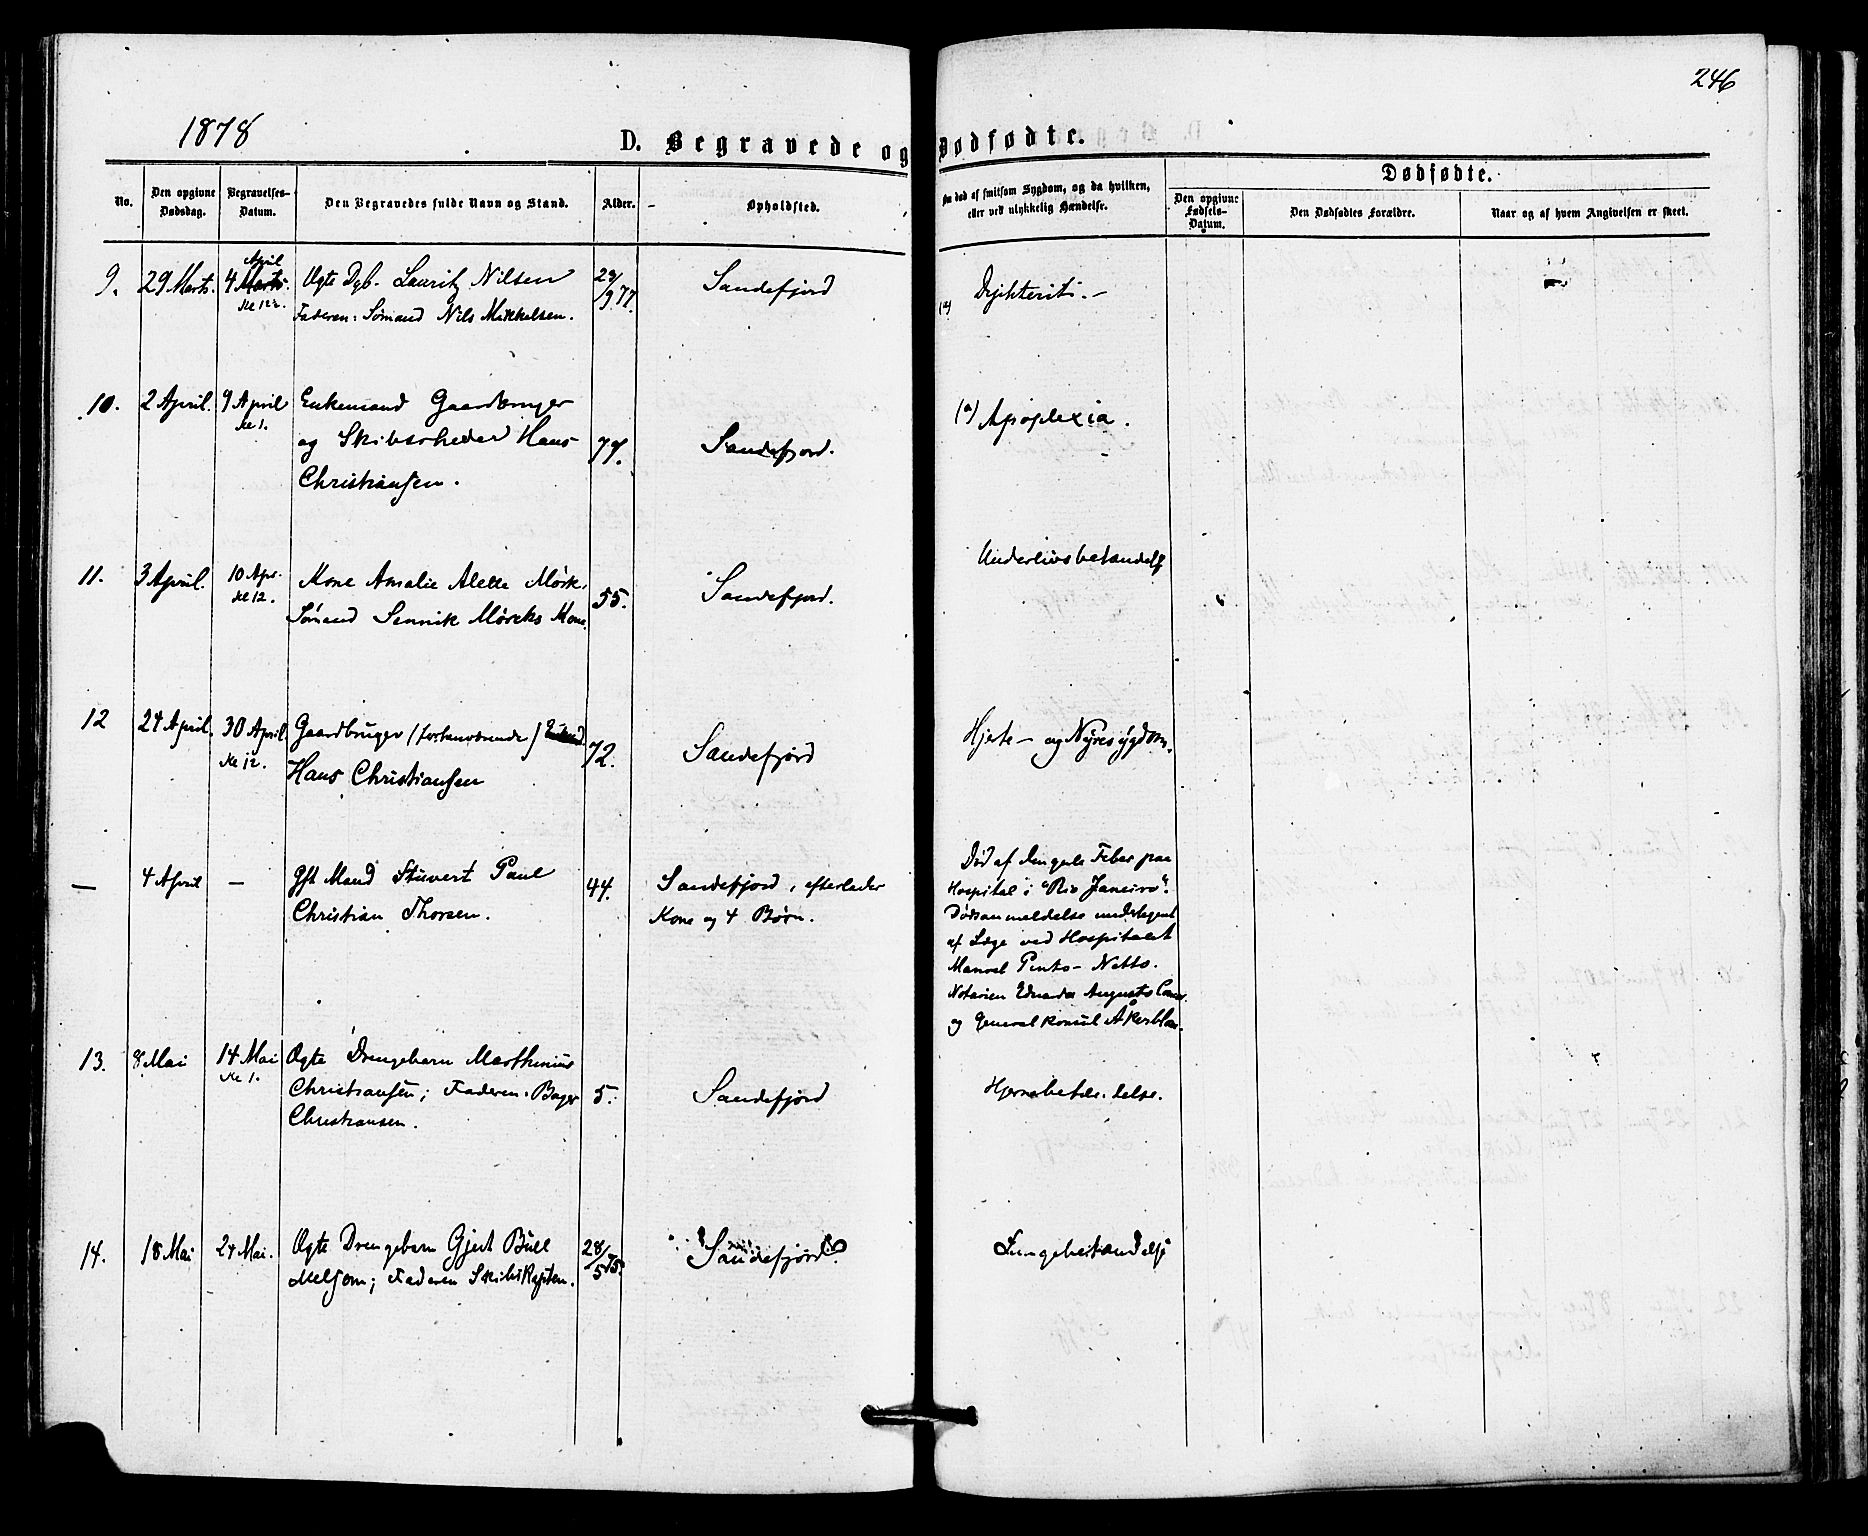 246
1878
D. Begravede og Dødfødte.
No.
Den opgivne Dødsdag.
Begravelses-Datum.
Den Begravedes fulde Navn og Stand.
Alder.
Opholdsted.
Om død af smitsom Sygdom, og da hvilken,
eller ved ulykkelig Hændelse.
Dødfødte.
Den opgivne Fødsels-Datum.
Den Dødfødtes Forældre.
Naar og af hvem Angivelsen er skeet.
9. 29 Marts. 4 Marts. April Kl 12½.
Ægte Dgb. Lauritz Nilsen
Faderen: Sømand Nils Mikkelsen.
29/9 77.
Sandefjord
(a) Diphterit. –
10. 2 April. 9 April Kl 1.
Enkemand Gaardbruger
og Skibsrheder Hans
Christiansen.
79.
Sandefjord.
(a) Apoplexia.
11. 3 April. 10 Apr. Kl 12.
Kone Amalie Alette Mørk,
Sømand Sennik Mørcks Kone.
55.
Sandefjord.
Underlivsbetændelse
12 24 April. 30 April. Kl 12.
Gaardbruger (forhenværende)
Hans Christiansen
72.
Sandefjord
Hjerte- og Nyresygdom.
— 4 April —
Gft Mand Stuvert Paul
Christian Thorsen.
44.
Sandefjord, efterlader
Kone og 4 Børn.
Død af den gule Feber paa
Hospital i "Rio Janeiro".
Dødsanmeldelse undertegnet
af Læge ved Hospitalet
Manoel Pinto-Netto.
Notarien Eduardo Augusto
og General Konsul Åkerblom.
13. 8 Mai 14 Mai Kl 1.
Ægte Drengebarn Marthinius
Christiansen; Faderen: Bager
Christiansen.
5.
Sandefjord
Hjernebetændelse.
14. 18 Mai 24 Mai.
Ægte Drengebarn Gjert Bull
Melsom; Faderen Skibskapten.
28/5 75.
Sandefjord.
Lungebetændelse